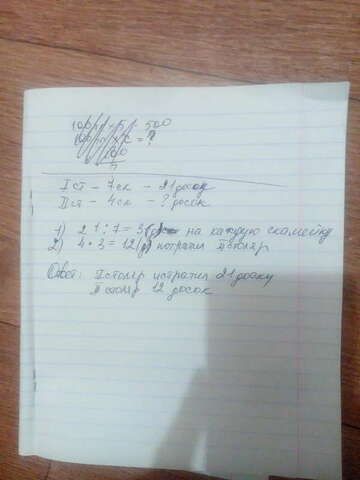 = 500
= ?
I ст - 7 ск - 21 доску
II ст - 4 ск - ? досок
1) 21 : 7 = 3 на каждую скамейку
2) 4 * 3 = 12 (д) потратил II столяр
Ответ: I столяр истратил 21 доску
II столяр 12 досок